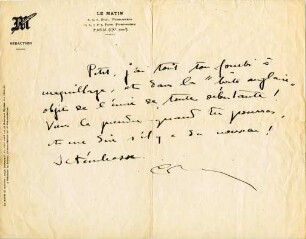 LE MATIN
PARIS
RÉDACTION
Petit, j'ai tout ton fourbi à
maquillage, et dans la "boîte anglaise"
objet de l'envie de toute débutante!
Viens le prendre quand tu pourras,
et me dire s'il y a du nouveau!
Je t'embrasse